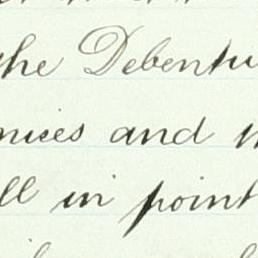 the Debentu
nices and
ll in point